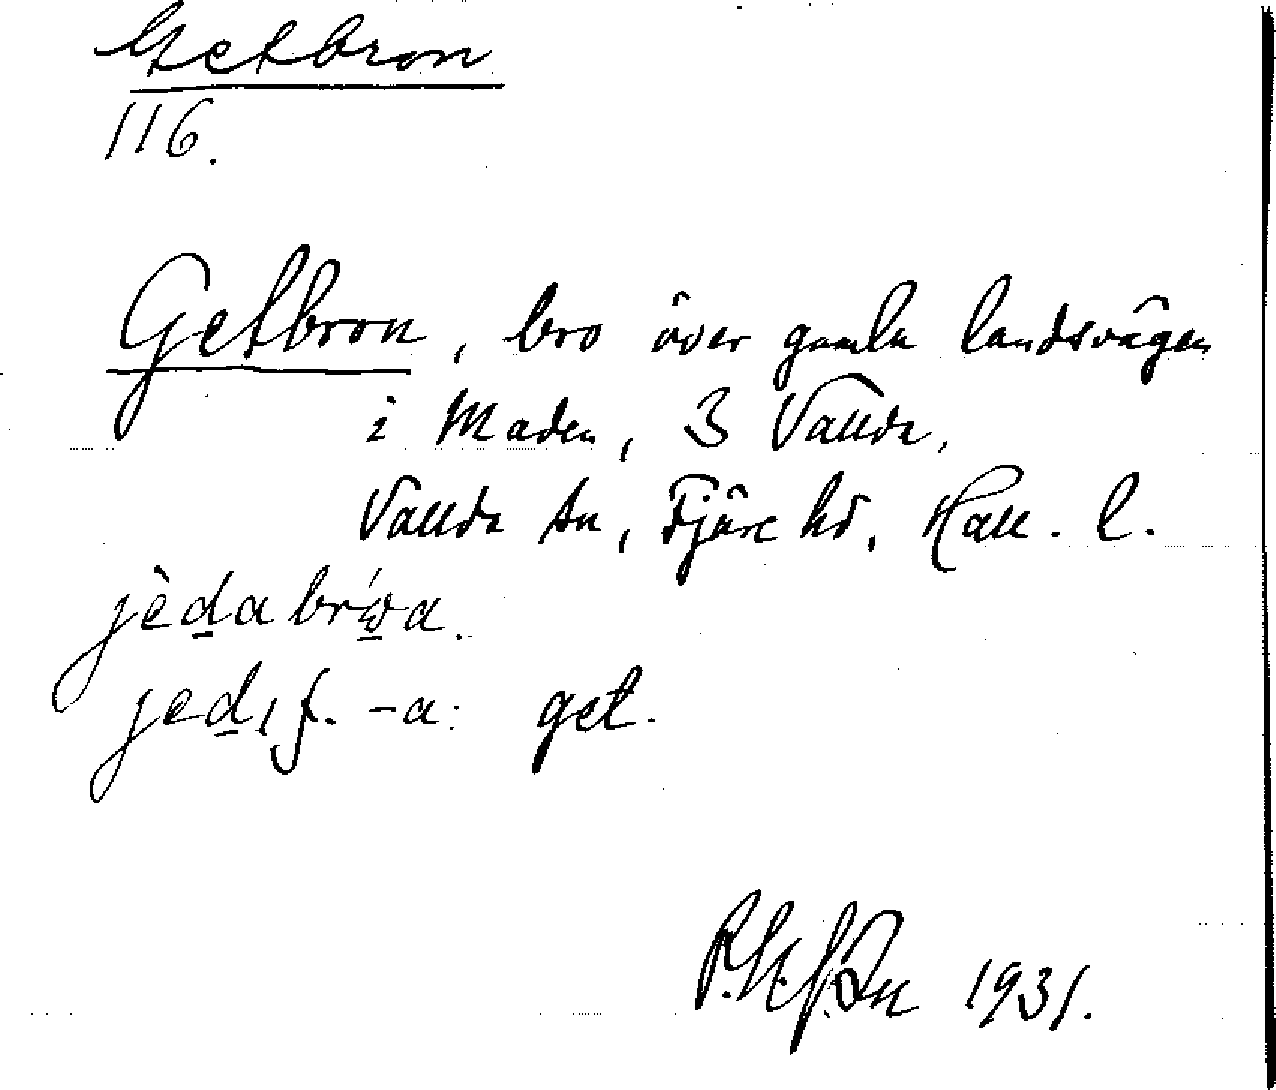 Getbron
116.
Getbron, bro över gamla landsvägen
i Maden, 3 Vallda,
Vallda sn, Fjäre hd, Hall. l.
jèd̲abrẃ̲a.
jed̲, f. -a: get.
1931.